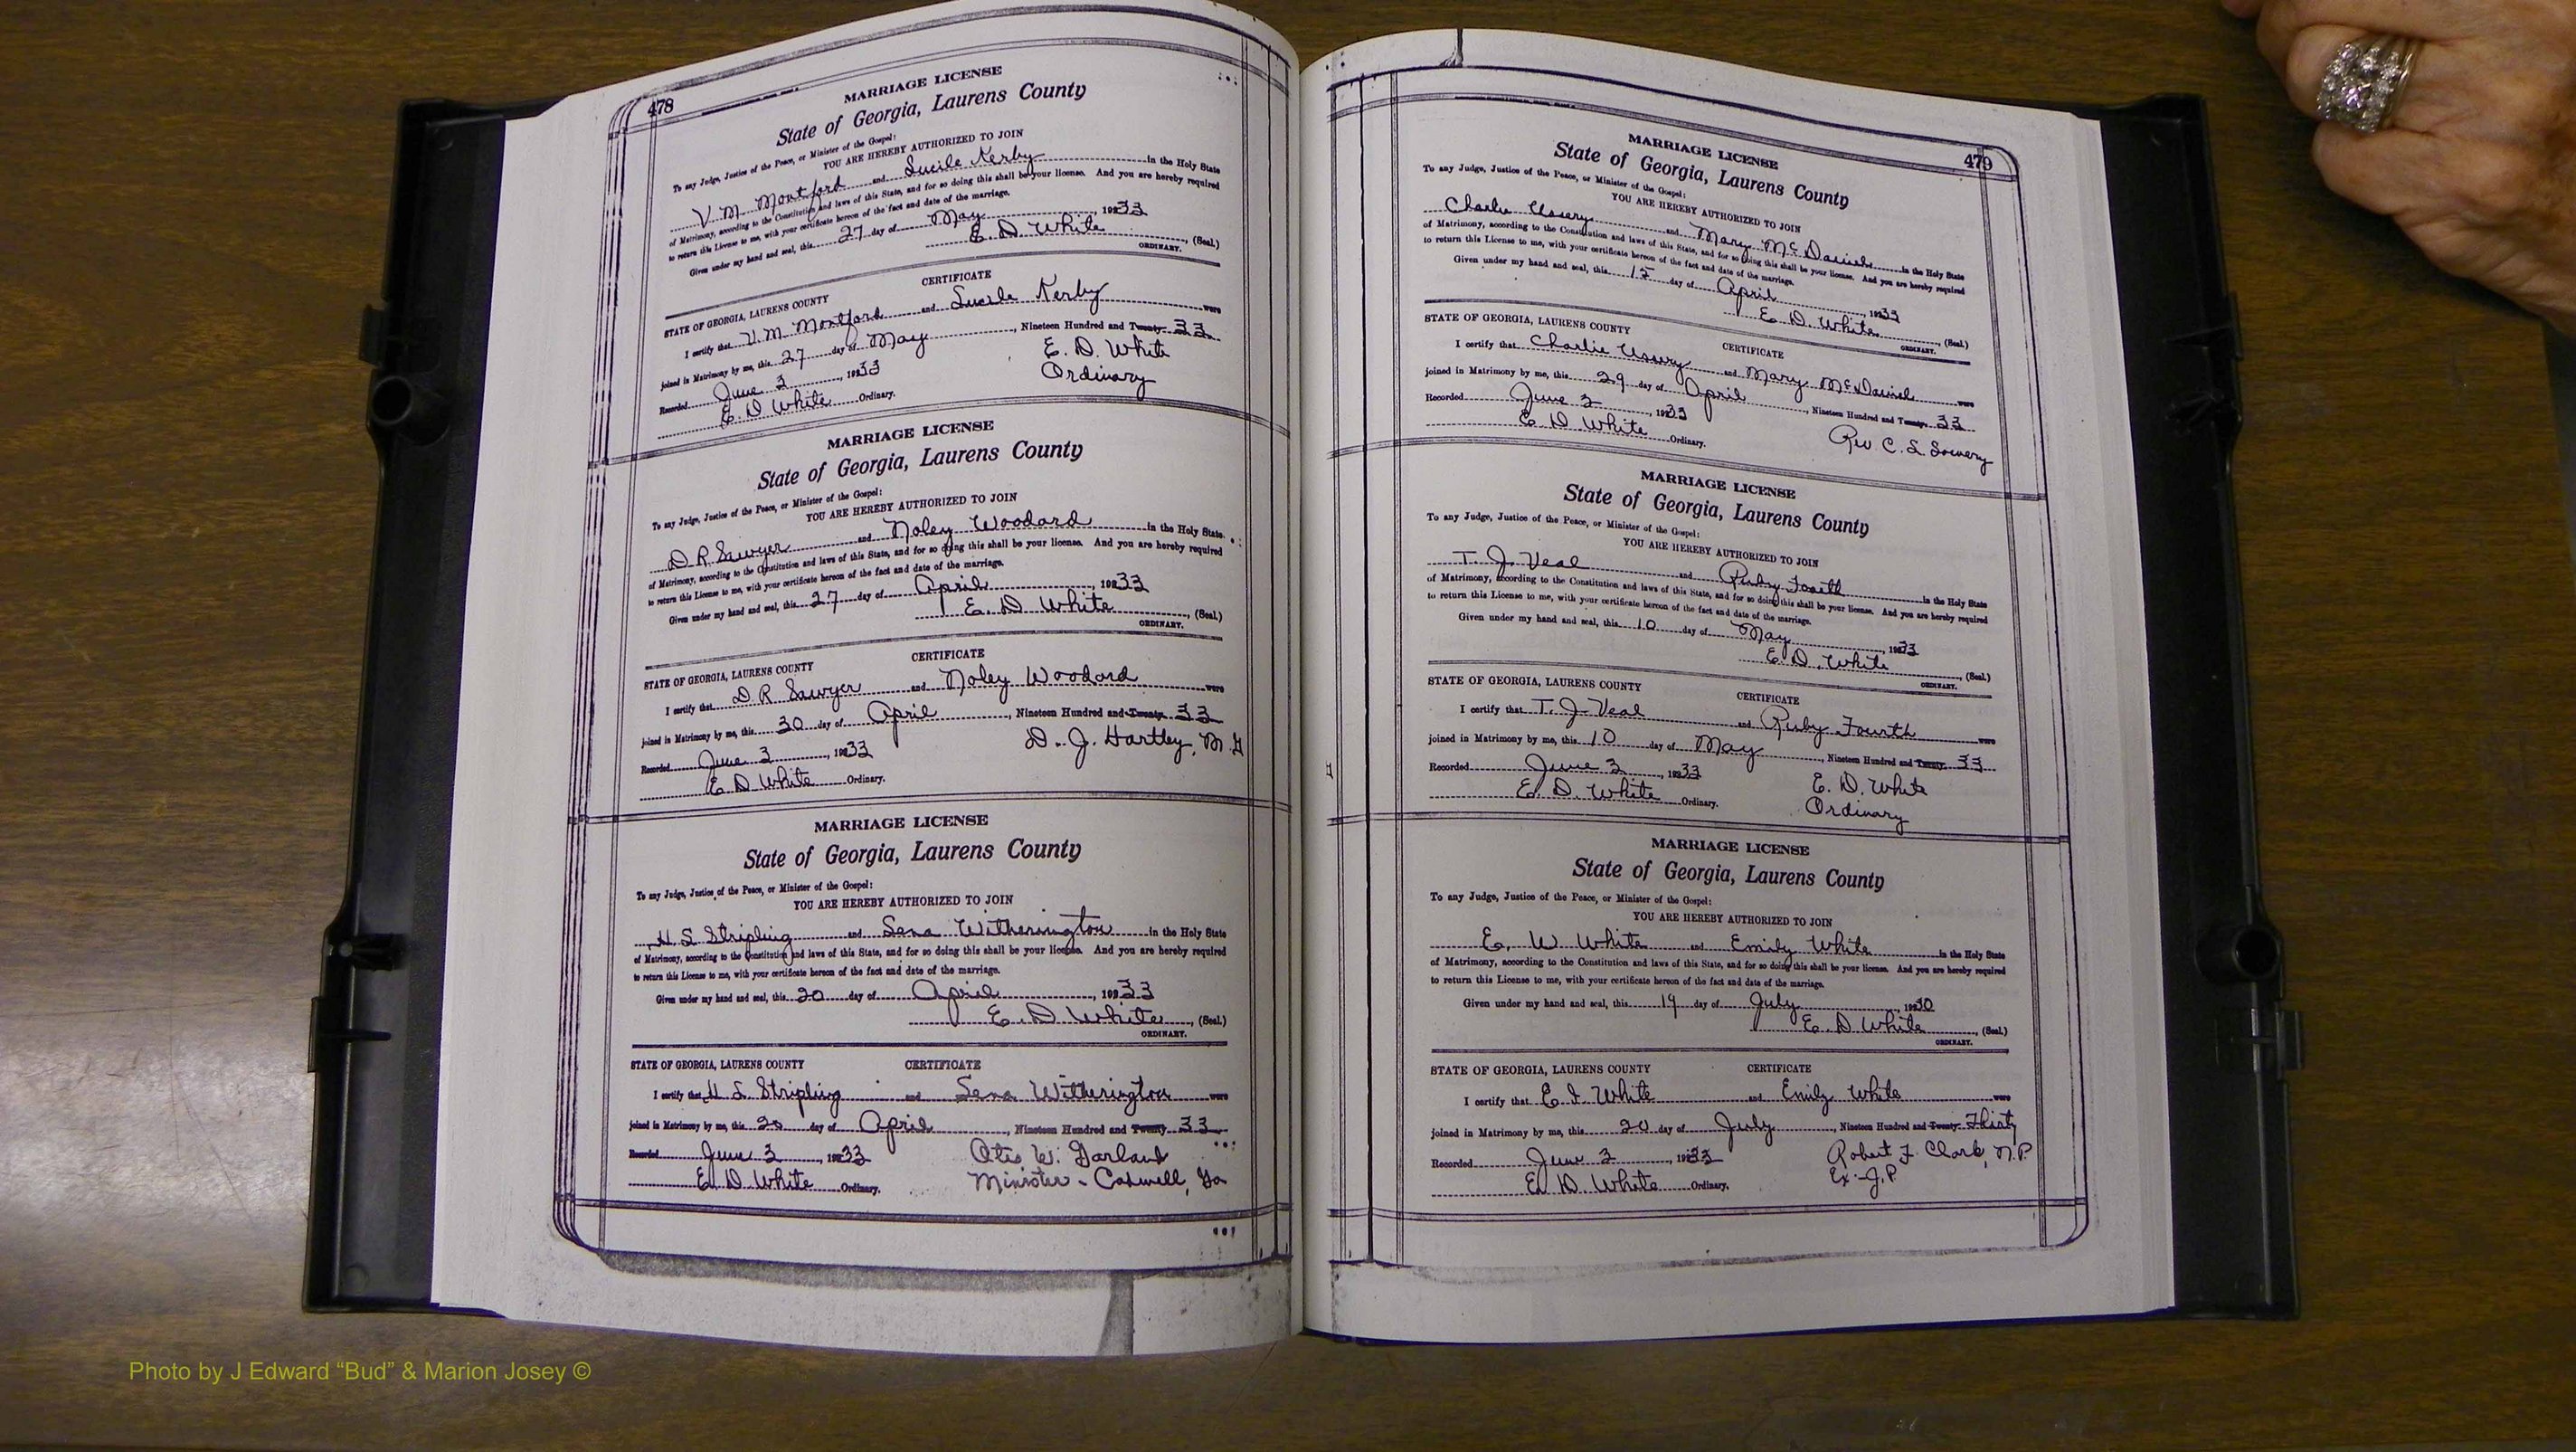 478
MARRIAGE LICENSE
State of Georgia, Laurens County
To any Judge, Justice of the Peace, or Minister of the Gospel:
YOU ARE HEREBY AUTHORIZED TO JOIN
V. M. Montford and Lucile Kerby in the Holy State
of Matrimony, according to the Constitution and laws of this State, and for so doing this shall be your license. And you are hereby required
to return this License to me, with your certificate hereon of the fact and date of the marriage.
Given under my hand and seal, this 27 day of May, 1933
E. D. White, (Seal.)
ORDINARY.
CERTIFICATE
STATE OF GEORGIA, LAURENS COUNTY
I certify that V. M. Montford and Lucile Kerby were
joined in Matrimony by me, this 27 day of May, Nineteen Hundred and Twenty 33
Recorded June 3, 1933
E. D. White
Ordinary
E. D. White Ordinary.
MARRIAGE LICENSE
State of Georgia, Laurens County
To any Judge, Justice of the Peace, or Minister of the Gospel:
YOU ARE HEREBY AUTHORIZED TO JOIN
D. R. Sawyer and Noley Woodard in the Holy State
of Matrimony, according to the Constitution and laws of this State, and for so doing this shall be your license. And you are hereby required
to return this License to me, with your certificate hereon of the fact and date of the marriage.
Given under my hand and seal, this 27 day of April, 1933
E. D. White, (Seal.)
ORDINARY.
CERTIFICATE
STATE OF GEORGIA, LAURENS COUNTY
I certify that D. R. Sawyer and Noley Woodard were
joined in Matrimony by me, this 30 day of April, Nineteen Hundred and Twenty 33
D. J. Hartley, M. G
Recorded June 3, 1933
E. D. White Ordinary.
MARRIAGE LICENSE
State of Georgia, Laurens County
To any Judge, Justice of the Peace, or Minister of the Gospel:
YOU ARE HEREBY AUTHORIZED TO JOIN
H. S. Stripling and Sena Witherington in the Holy State
of Matrimony, according to the Constitution and laws of this State, and for so doing this shall be your license. And you are hereby required
to return this License to me, with your certificate hereon of the fact and date of the marriage.
Given under my hand and seal, this 20 day of April, 1933
E. D. White, (Seal.)
ORDINARY.
STATE OF GEORGIA, LAURENS COUNTY CERTIFICATE
I certify that H. S. Stripling and Sena Witherington were
joined in Matrimony by me, this 20 day of April, Nineteen Hundred and Twenty 33
Recorded June 3, 1933 Otis W. Garland
E. D. White Ordinary. Minister - Cadwell, Ga
479
MARRIAGE LICENSE
State of Georgia, Laurens County
To any Judge, Justice of the Peace, or Minister of the Gospel:
YOU ARE HEREBY AUTHORIZED TO JOIN
Charlie Ussery and Mary McDaniels in the Holy State
of Matrimony, according to the Constitution and laws of this State, and for so doing this shall be your license. And you are hereby required
to return this License to me, with your certificate hereon of the fact and date of the marriage.
Given under my hand and seal, this day of April, 1933
E. D. White, (Seal.)
ORDINARY.
STATE OF GEORGIA, LAURENS COUNTY CERTIFICATE
I certify that Charlie Ussery and Mary McDaniel were
joined in Matrimony by me, this 29 day of April, Nineteen Hundred and Twenty 33
Recorded June 3, 1933
E. D. White Ordinary. Rev. C. S. Lowery
MARRIAGE LICENSE
State of Georgia, Laurens County
To any Judge, Justice of the Peace, or Minister of the Gospel:
YOU ARE HEREBY AUTHORIZED TO JOIN
T. J. Veal and Ruby Fourth in the Holy State
of Matrimony, according to the Constitution and laws of this State, and for so doing this shall be your license. And you are hereby required
to return this License to me, with your certificate hereon of the fact and date of the marriage.
Given under my hand and seal, this 10 day of May, 1933
E. D. White, (Seal.)
ORDINARY.
STATE OF GEORGIA, LAURENS COUNTY CERTIFICATE
I certify that T. J. Veal and Ruby Fourth were
joined in Matrimony by me, this 10 day of May, Nineteen Hundred and Twenty 33
Recorded June 3, 1933 E. D. White
E. D. White Ordinary. Ordinary
MARRIAGE LICENSE
State of Georgia, Laurens County
To any Judge, Justice of the Peace, or Minister of the Gospel:
YOU ARE HEREBY AUTHORIZED TO JOIN
E. W. White and Emily White in the Holy State
of Matrimony, according to the Constitution and laws of this State, and for so doing this shall be your license. And you are hereby required
to return this License to me, with your certificate hereon of the fact and date of the marriage.
Given under my hand and seal, this 19 day of July, 1930
E. D. White, (Seal.)
ORDINARY.
STATE OF GEORGIA, LAURENS COUNTY CERTIFICATE
I certify that E. I. White and Emily White were
joined in Matrimony by me, this 20 day of July, Nineteen Hundred and Twenty Thirty
Recorded June 3, 1933 Robert F. Clark, N.P.
E. D. White Ordinary. Ex-J.P.
Photo by J Edward “Bud” & Marion Josey ©